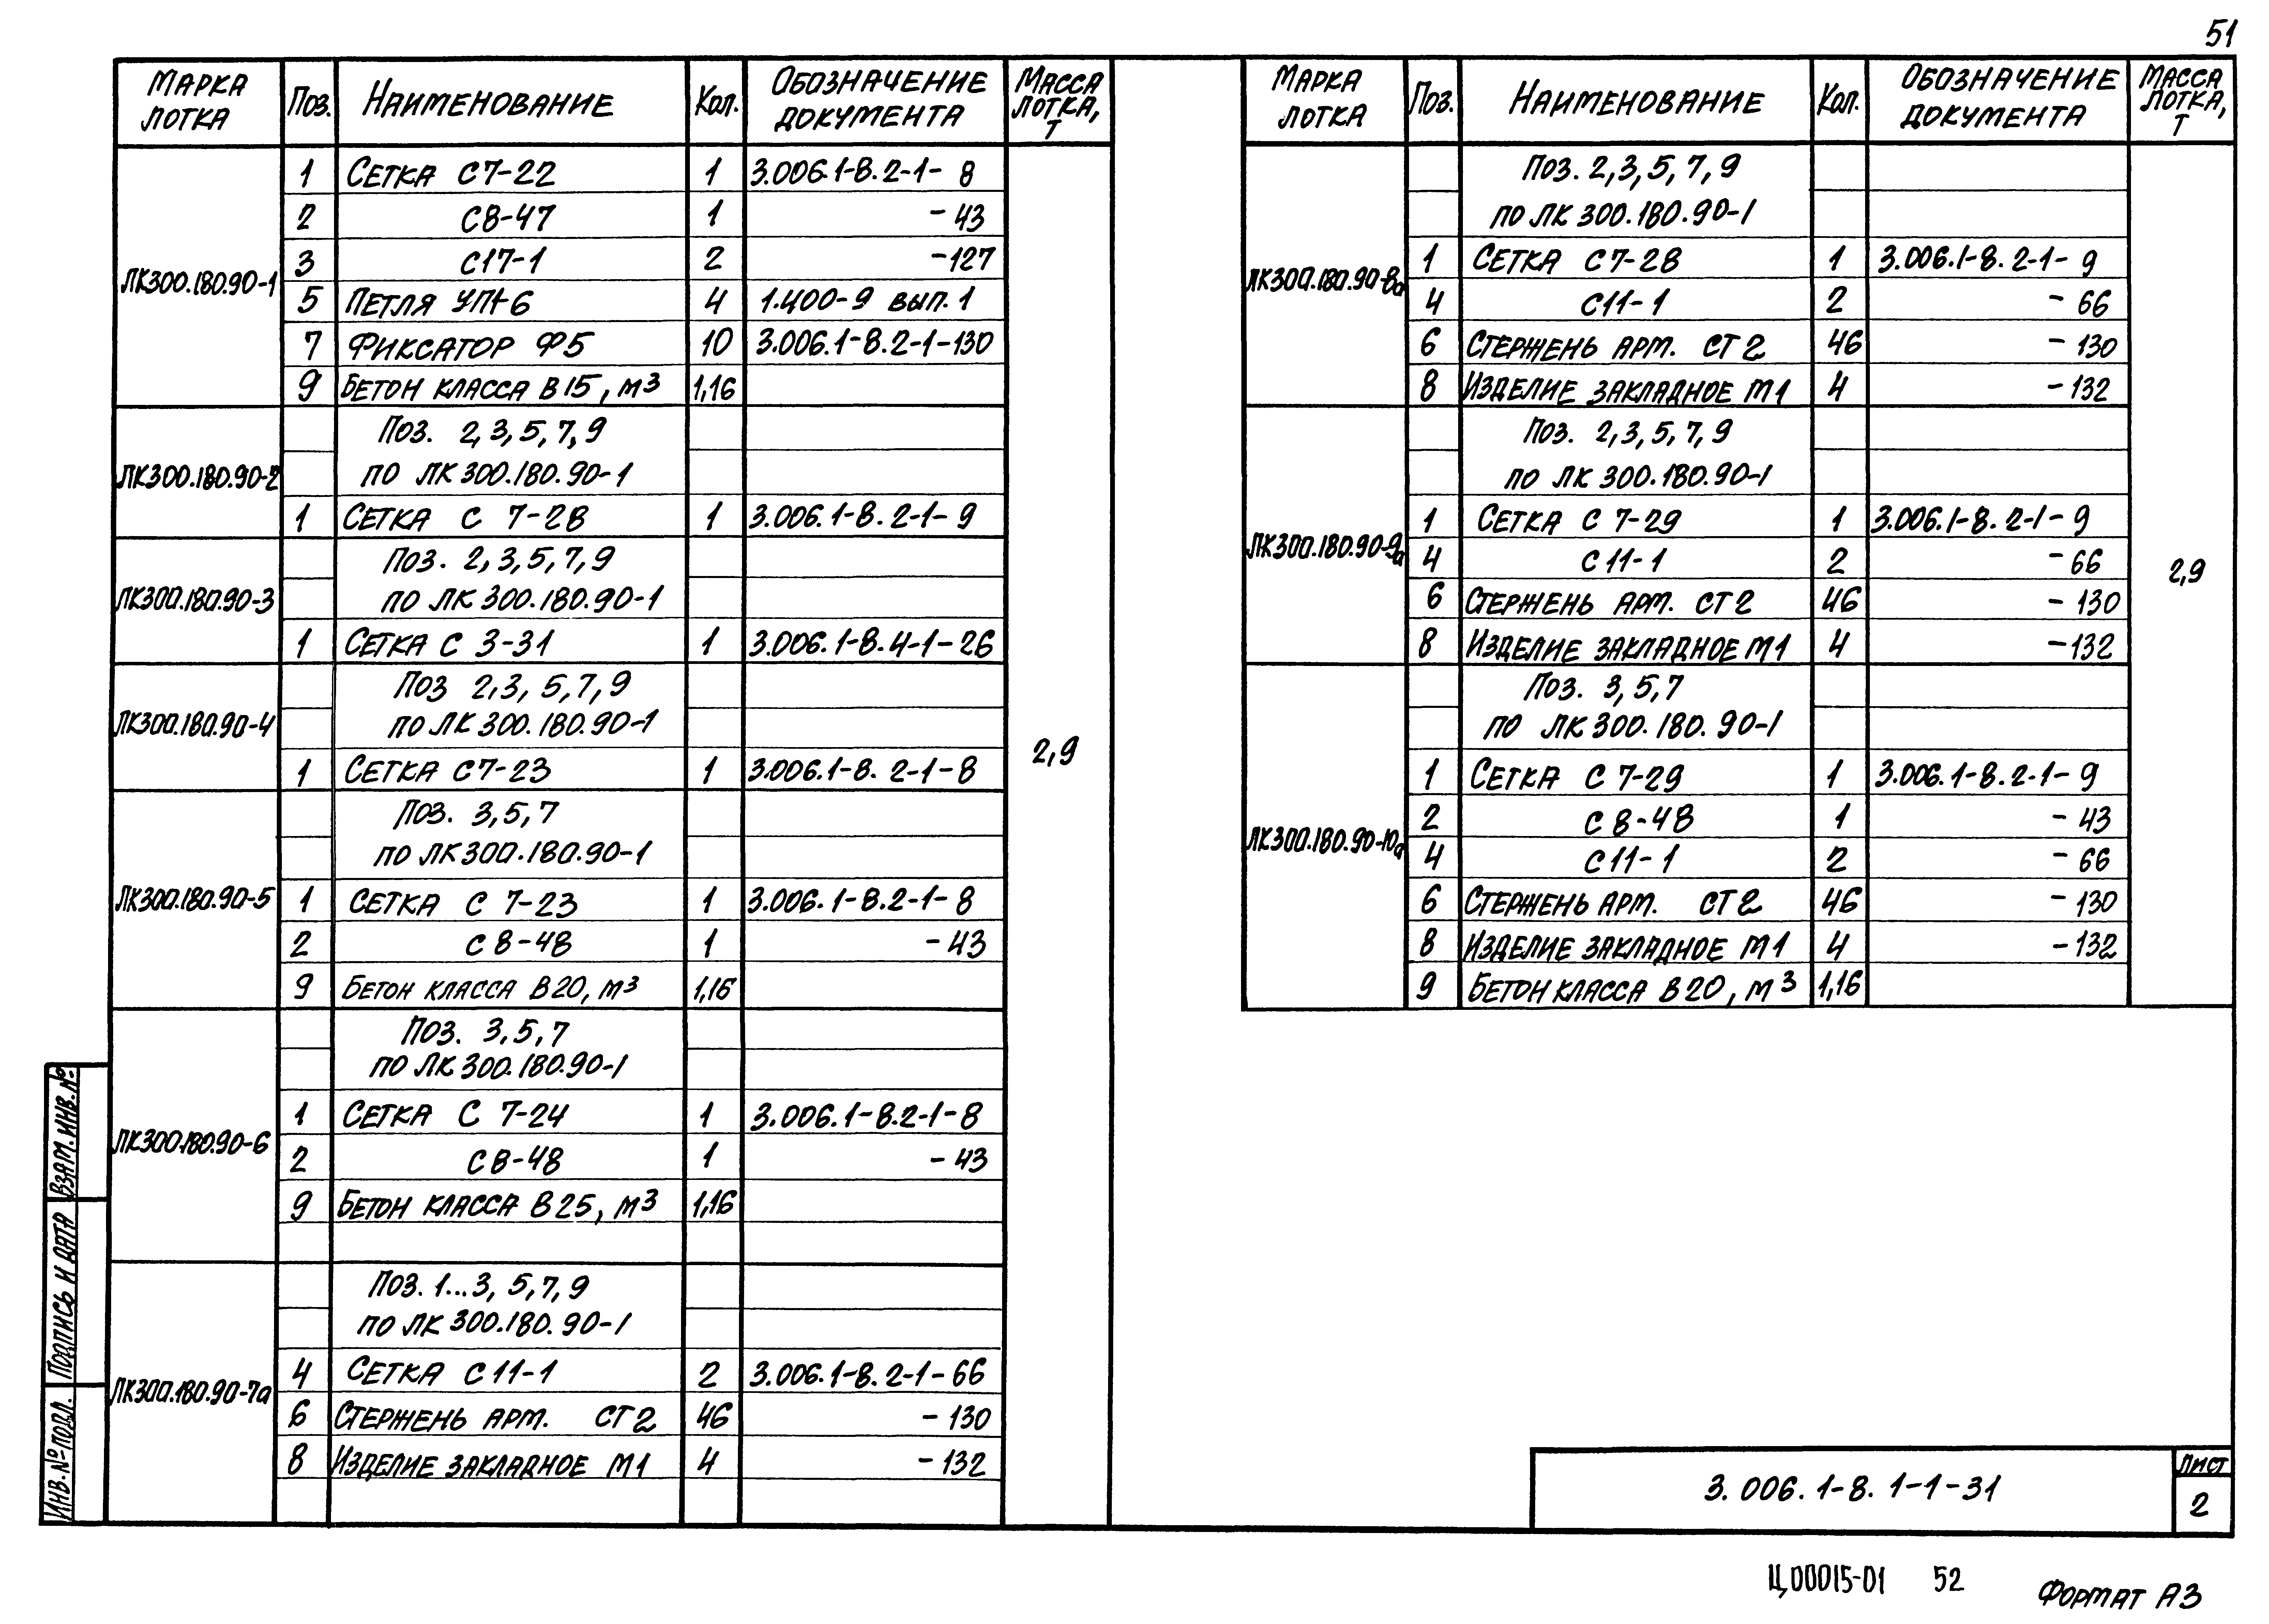 51
Марка лотка | Поз. | Наименование | Кол. | Обозначение документа | Масса лотка, т
ЛК300.180.90-1 | 1 | Сетка С7-22 | 1 | 3.006.1-8.2-1-8 | 2,9
2 | С8-47 | 1 | -43
3 | С17-1 | 2 | -127
5 | Петля УП1-6 | 4 | 1.400-9 вып.1
7 | Фиксатор Ф5 | 10 | 3.006.1-8.2-1-130
9 | Бетон класса В15, м3 | 1,16
ЛК300.180.90-2 | Поз. 2,3,5,7,9
по ЛК300.180.90-1
1 | Сетка С 7-28 | 1 | 3.006.1-8.2-1-9
ЛК300.180.90-3 | Поз. 2,3,5,7,9
по ЛК300.180.90-1
1 | Сетка С 3-31 | 1 | 3.006.1-8.4-1-26
ЛК300.180.90-4 | Поз 2,3,5,7,9
по ЛК300.180.90-1
1 | Сетка С7-23 | 1 | 3.006.1-8.2-1-8
ЛК300.180.90-5 | Поз. 3,5,7
по ЛК300.180.90-1
1 | Сетка С 7-23 | 1 | 3.006.1-8.2-1-8
2 | С8-48 | 1 | -43
9 | Бетон класса В20, м3 | 1,16
ЛК300.180.90-6 | Поз. 3,5,7
по ЛК300.180.90-1
1 | Сетка С 7-24 | 1 | 3.006.1-8.2-1-8
2 | С8-48 | 1 | -43
9 | Бетон класса В25, м3 | 1,16
ЛК300.180.90-7а | Поз. 1...3, 5,7,9
по ЛК300.180.90-1
4 | Сетка С11-1 | 2 | 3.006.1-8.2-1-66
6 | Стержень арм. СТ2 | 46 | -130
8 | Изделие закладное М1 | 4 | -132
Марка лотка | Поз. | Наименование | Кол. | Обозначение документа | Масса лотка, т
ЛК300.180.90-8а | Поз. 2,3,5,7,9 | 2,9
по ЛК300.180.90-1
1 | Сетка С7-28 | 1 | 3.006.1-8.2-1-9
4 | С11-1 | 2 | -66
6 | Стержень арм. СТ2 | 46 | -130
8 | Изделие закладное М1 | 4 | -132
ЛК300.180.90-9а | Поз. 2,3,5,7,9
по ЛК300.180.90-1
1 | Сетка С 7-29 | 1 | 3.006.1-8.2-1-9
4 | С11-1 | 2 | -66
6 | Стержень арм. СТ2 | 46 | -130
8 | Изделие закладное М1 | 4 | -132
ЛК300.180.90-10а | Поз. 3,5,7
по ЛК300.180.90-1
1 | Сетка С 7-29 | 1 | 3.006.1-8.2-1-9
2 | С8-48 | 1 | -43
4 | С11-1 | 2 | -66
6 | Стержень арм. СТ2 | 46 | -130
8 | Изделие закладное М1 | 4 | -132
9 | Бетон класса В20, м3 | 1,16
Взам. инв. №
Подпись и дата
Инв. № подл.
3.006.1-8.1-1-31
Лист
2
Ц00015-01 52
Формат А3